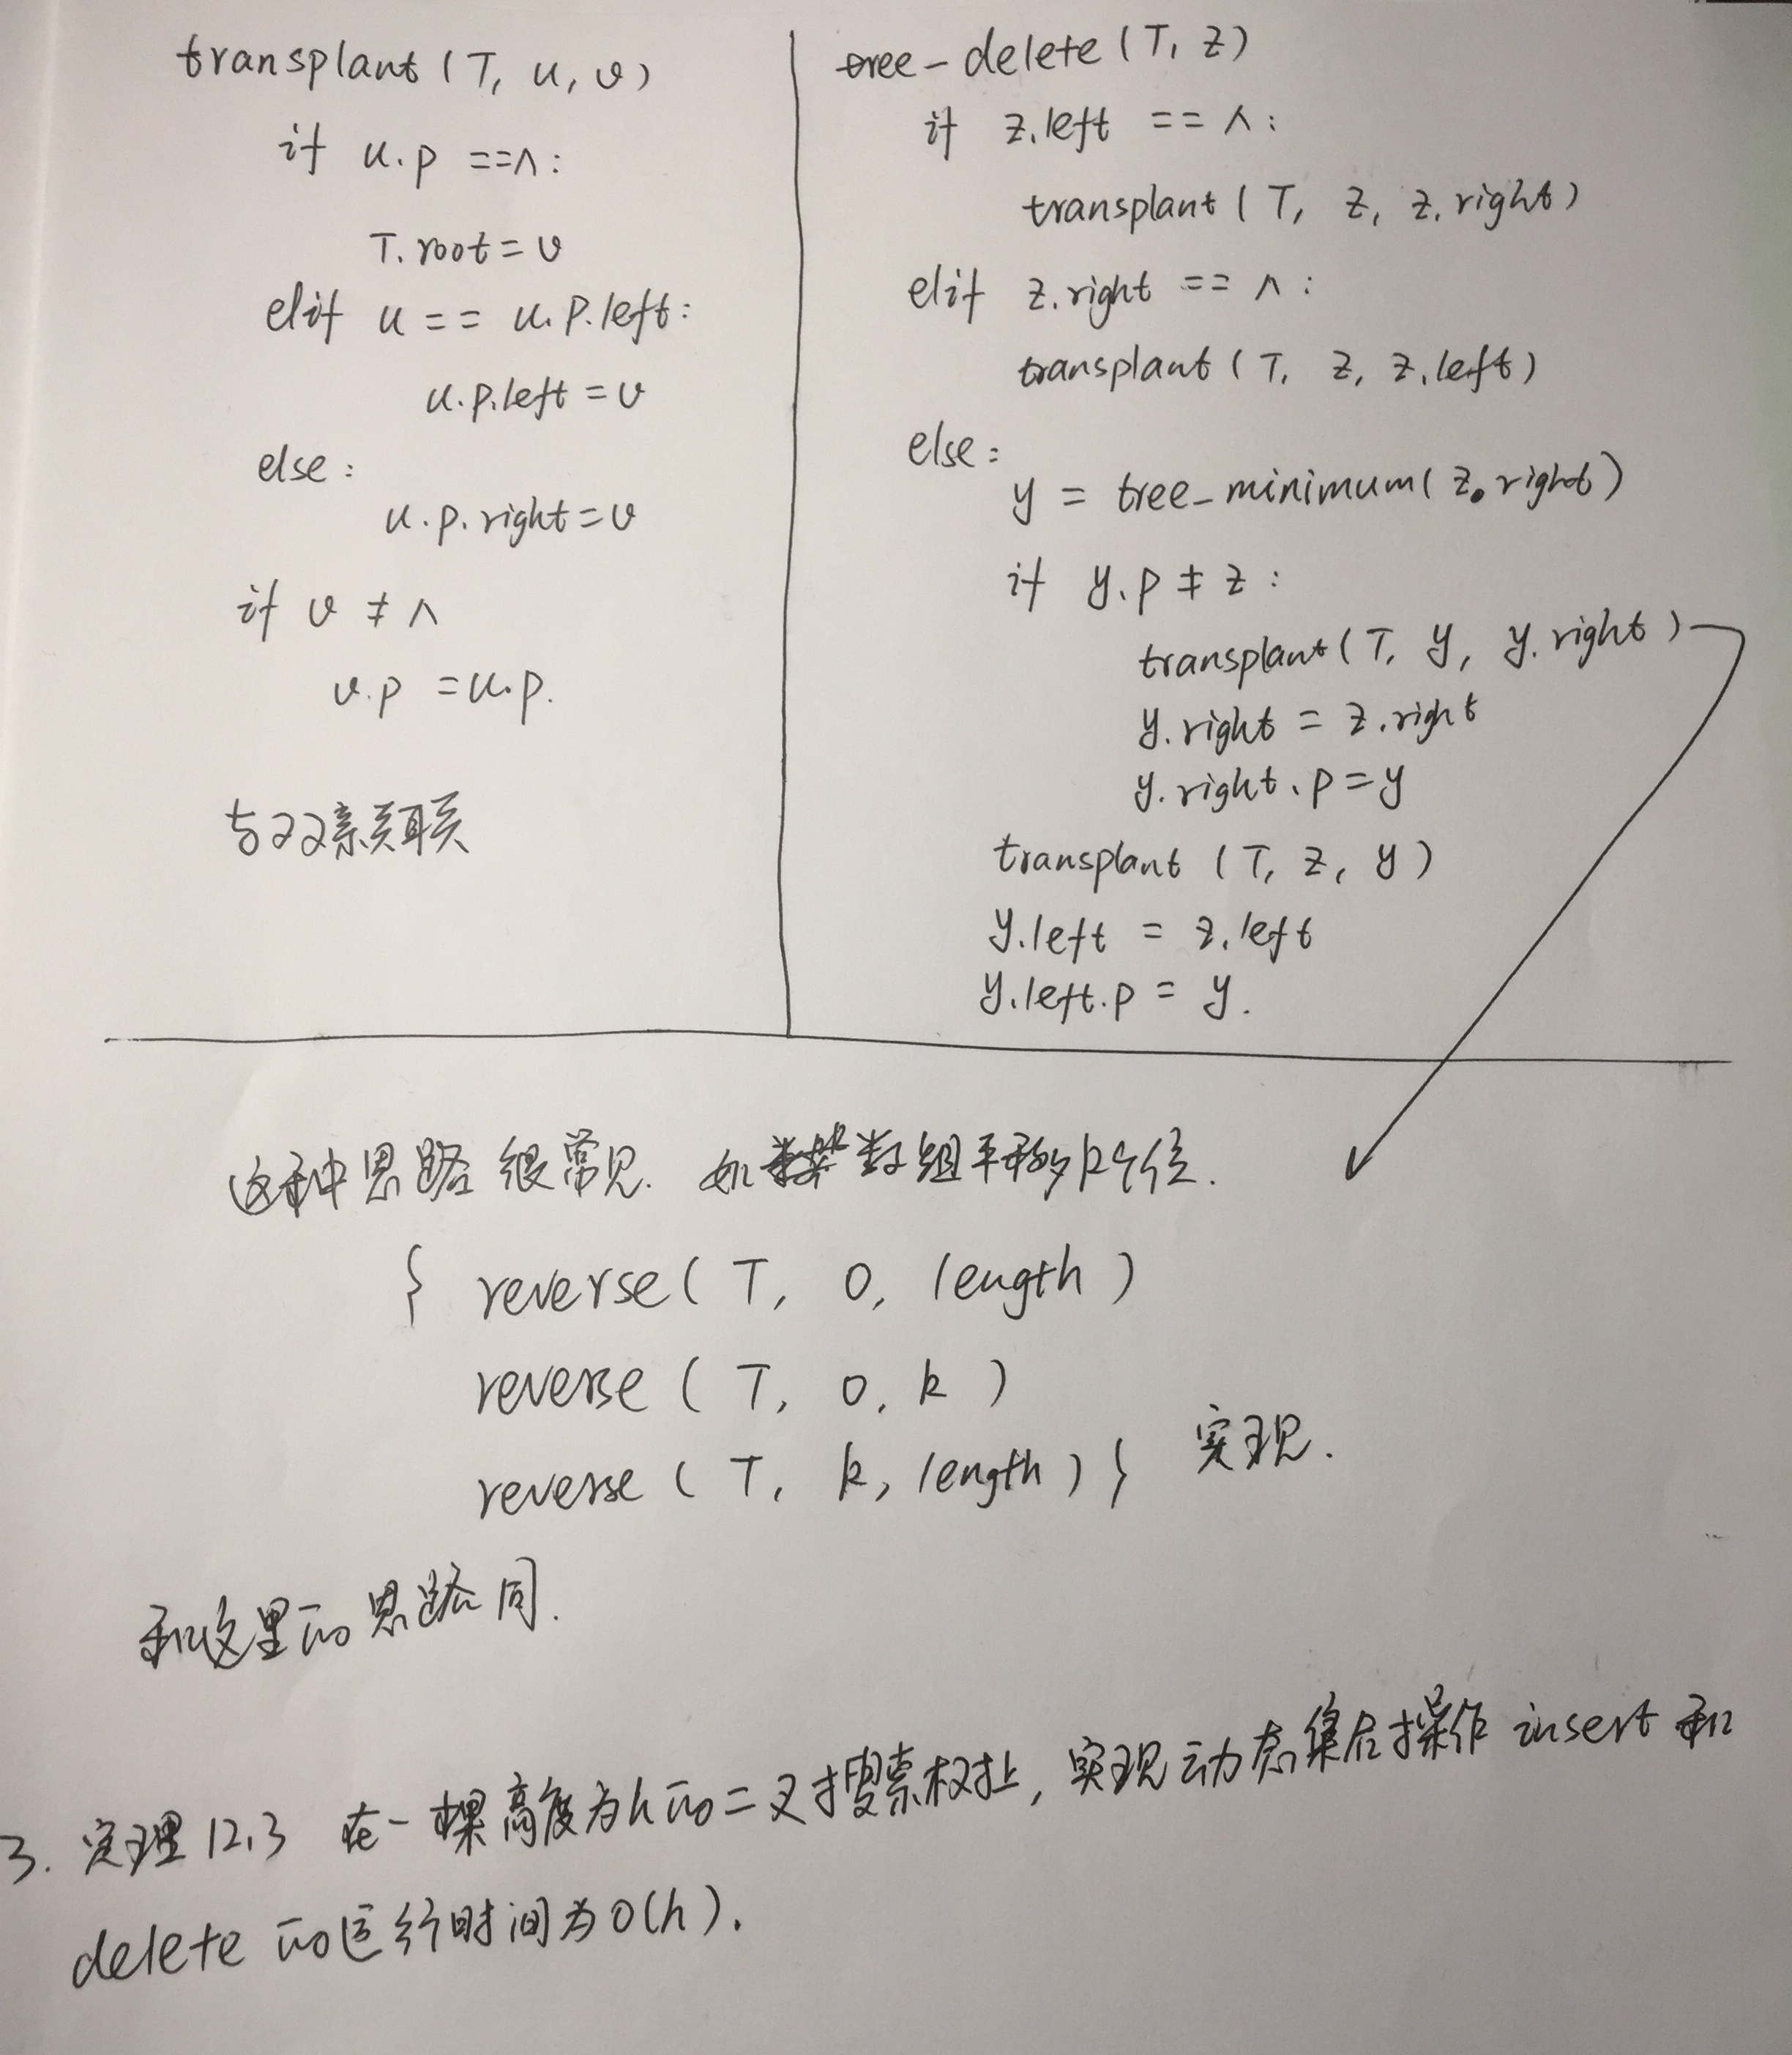 transplant (T, u, v)
if u.p == ∧:
T.root = v
elif u == u.p.left:
u.p.left = v
else:
u.p.right = v
if v ≠ ∧
v.p = u.p.
与双亲关联
tree-delete (T, z)
if z.left == ∧:
transplant (T, z, z.right)
elif z.right == ∧:
transplant (T, z, z.left)
else:
y = tree_minimum(z.right)
if y.p ≠ z:
transplant (T, y, y.right)
y.right = z.right
y.right.p = y
transplant (T, z, y)
y.left = z.left
y.left.p = y.
这种思路很常见. 如数组平移k个位.
{ reverse( T, 0, length )
reverse ( T, 0, k )
reverse ( T, k, length ) } 实现.
和这里的思路同.
3. 定理12.3 在一棵高度为h的二叉搜索树上, 实现动态集合操作 insert 和
delete 的运行时间为O(h).